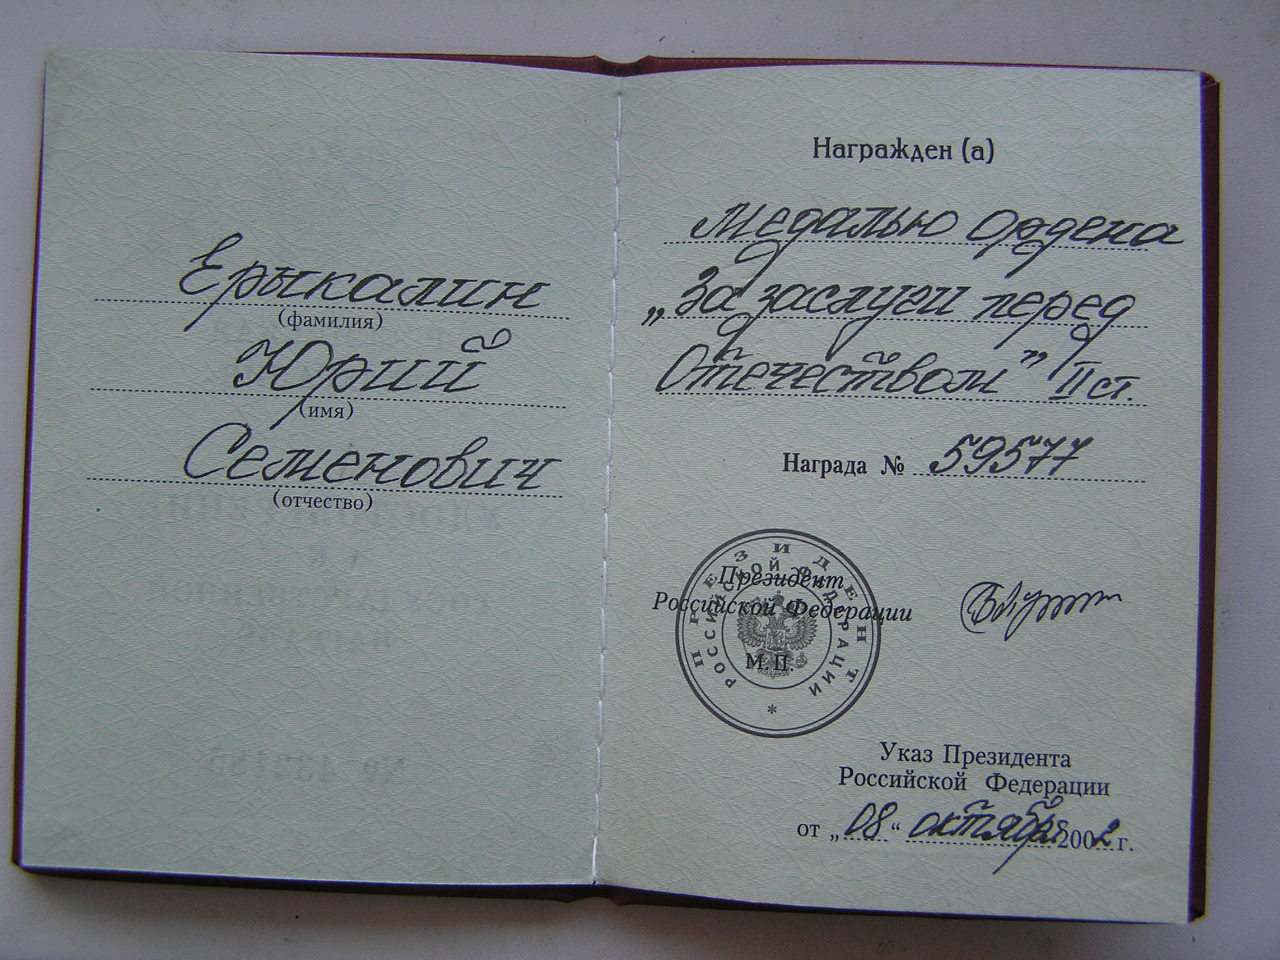 Ерыкалин
(фамилия)
Юрий
(имя)
Семенович
(отчество)
Награжден (а)
Медалью ордена
„За заслуги перед
Отечеством” II ст.
Награда № 59577
Президент
Российской Федерации
М.П.
ПРЕЗИДЕНТ
РОССИЙСКОЙ ФЕДЕРАЦИИ
*
Указ Президента
Российской Федерации
от „08“ октября 2002 г.